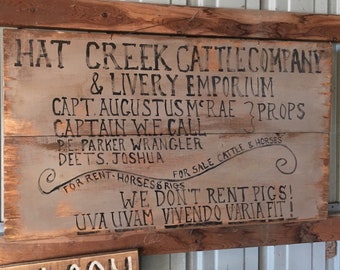 HAT CREEK CATTLE COMPANY
& LIVERY EMPORIUM
CAPT. AUGUSTUS McRAE } PROPS
CAPTAIN W.F. CALL
P.E. PARKER WRANGLER
DEETS, JOSHUA
FOR RENT-HORSES & RIGS FOR SALE CATTLE & HORSES
WE DON'T RENT PIGS!
UVA UVAM VIVENDO VARIA FIT!